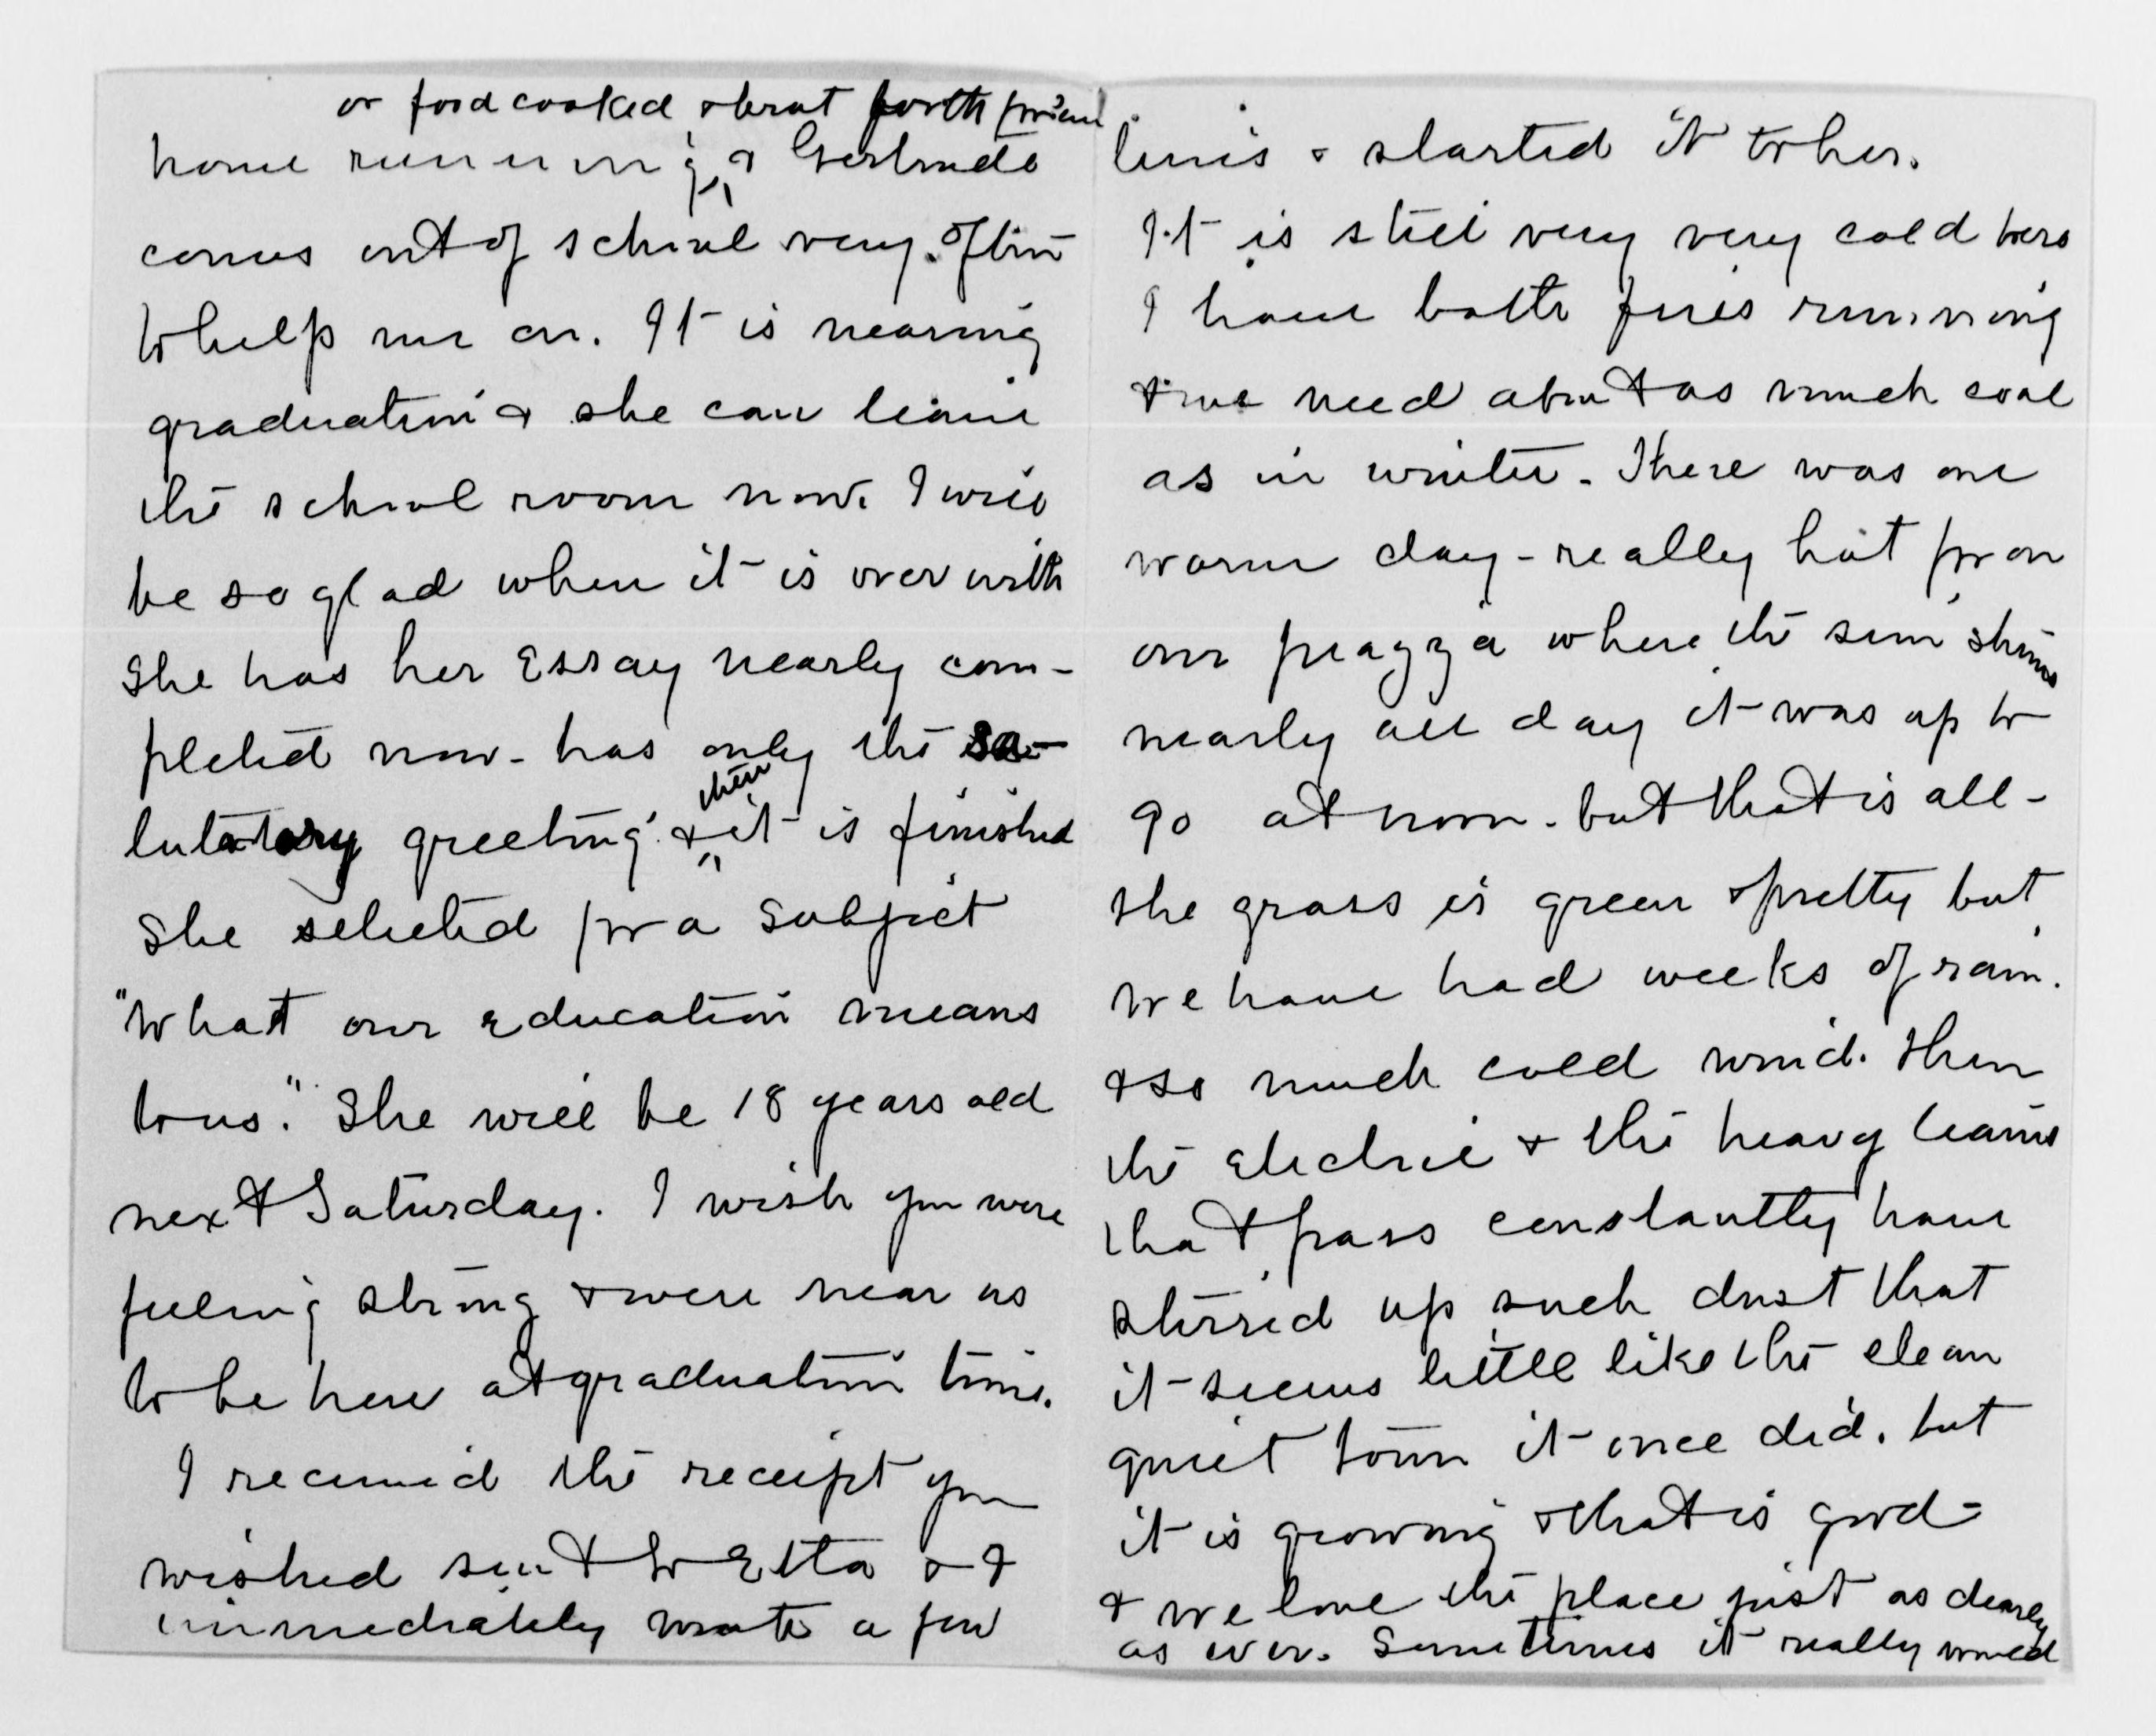 or food cooked & brot forth
home running & Gertrude
comes out of school very often
to help me on. It is nearing
graduation & she can leave
the school room now. I will
be so glad when it is over with
She has her Essay nearly com-
pleted now - has only the sa-
lutatory greeting & then it is finished
She selected for a subject
"What our education means
to us." She will be 18 years old
next Saturday. I wish you were
feeling strong & were near us
to be here at graduation time.
I received the receipt you
wished sent to Etta & I
immediately wrote a few
lines & started it to her.
It is still very very cold here
I have both fires running
& we need about as much coal
as in winter. There was one
warm day - really hot for on
our piazza where the sun shines
nearly all day it was up to
90 at noon. but that is all -
The grass is green & pretty but
we have had weeks of rain.
& so much cold wind. Then
the Electric & the heavy teams
that pass constantly have
stirred up such dust that
it seems little like the clean
quiet town it once did. but
it is growing & that is good -
& we love the place just as dearly
as ever. Sometimes it really would